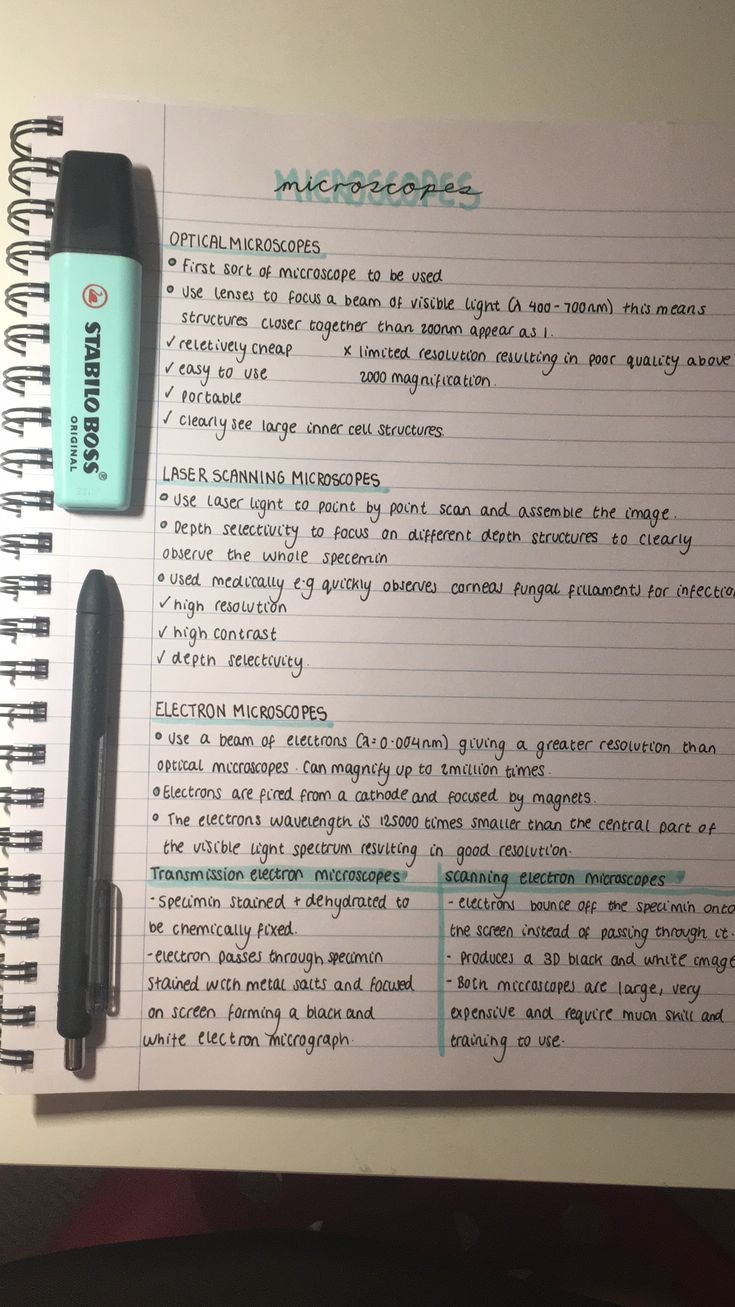 microscopes
MICROSCOPES
OPTICAL MICROSCOPES
• First sort of microscope to be used
• Use lenses to focus a beam of visible light (λ 400-700nm) this means
structures closer together than 200nm appear as 1.
✓ reletively cheap x limited resolution resulting in poor quality above
✓ easy to use 2000 magnification.
✓ portable
✓ clearly see large inner cell structures.
LASER SCANNING MICROSCOPES
• Use laser light to point by point scan and assemble the image.
• Depth selectivity to focus on different depth structures to clearly
observe the whole specemin
• Used medically e.g quickly observes corneas fungal fillaments for infectio
✓ high resolution
✓ high contrast
✓ depth selectivity.
ELECTRON MICROSCOPES
• Use a beam of electrons (λ=0.004nm) giving a greater resolution than
optical microscopes. Can magnify up to 2million times.
• Electrons are fired from a cathode and focused by magnets.
• The electrons wavelength is 125000 times smaller than the central part of
the visible light spectrum resulting in good resolution.
Transmission electron microscopes
- Specimin stained + dehydrated to
be chemically fixed.
- electron passes through specimin
stained with metal salts and focused
on screen forming a black and
white electron micrograph.
scanning electron microscopes
- electrons bounce off the specimin onto
the screen instead of passing through it.
- Produces a 3D black and white image
- Both microscopes are large, very
expensive and require much skill and
training to use.
STABILO BOSS®
ORIGINAL